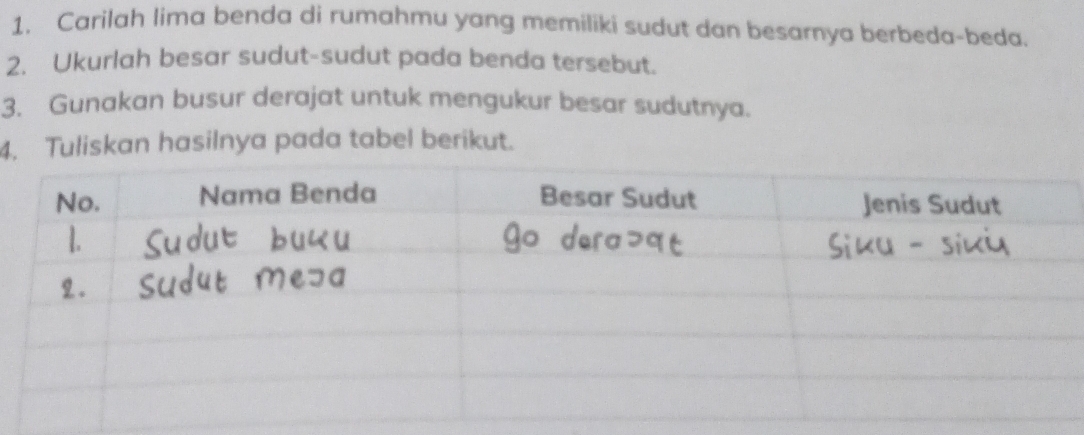 1. Carilah lima benda di rumahmu yang memiliki sudut dan besarnya berbeda-beda.
2. Ukurlah besar sudut-sudut pada benda tersebut.
3. Gunakan busur derajat untuk mengukur besar sudutnya.
4. Tuliskan hasilnya pada tabel berikut.
No. Nama Benda Besar Sudut Jenis Sudut
1. Sudut buku 90 derajat Siku - siku
2. Sudut meja